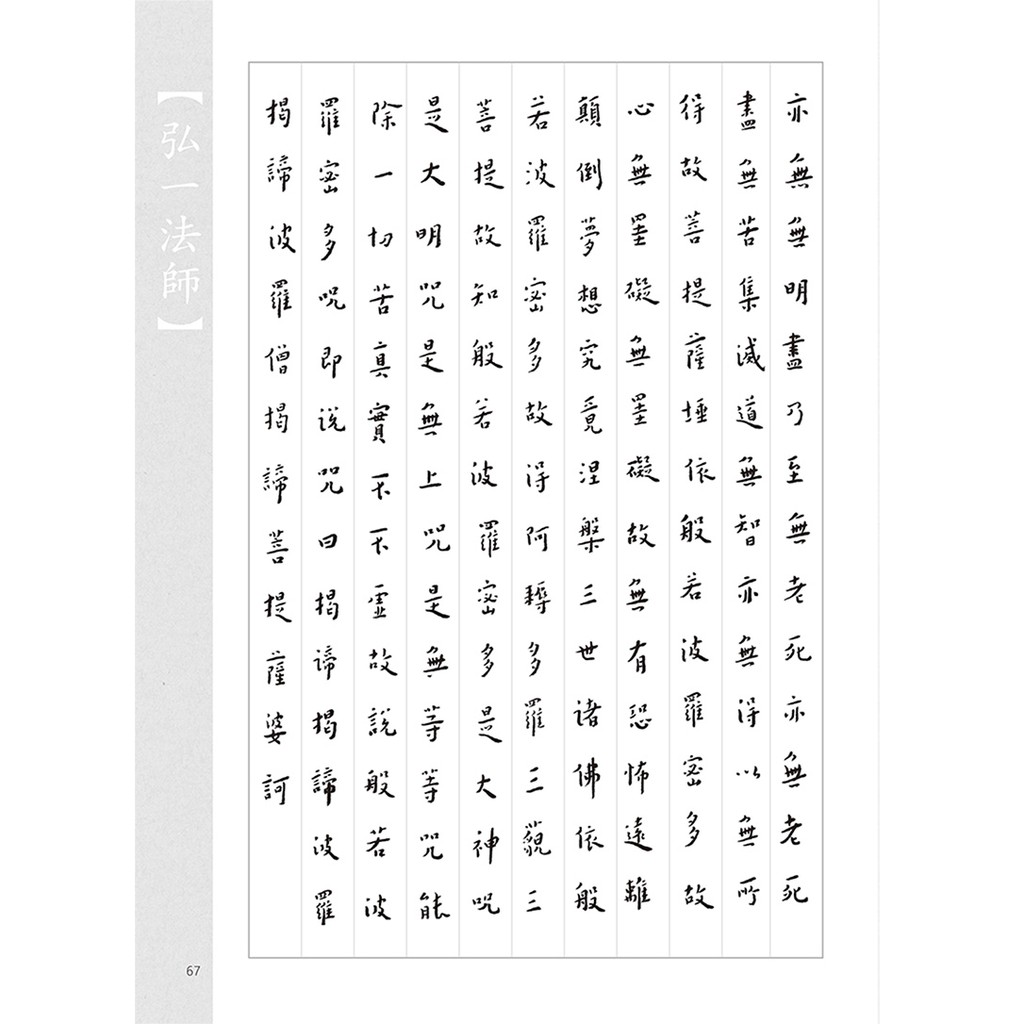 亦無無明盡乃至無老死亦無老死
盡無苦集滅道無智亦無得以無所
得故菩提薩埵依般若波羅密多故
心無罣礙無罣礙故無有恐怖遠離
顛倒夢想究竟涅槃三世諸佛依般
若波羅密多故得阿耨多羅三藐三
菩提故知般若波羅密多是大神咒
是大明咒是無上咒是無等等咒能
除一切苦真實不不虛故說般若波
羅密多咒即說咒曰揭諦揭諦波羅
揭諦波羅僧揭諦菩提薩婆訶
【弘一法師】
67